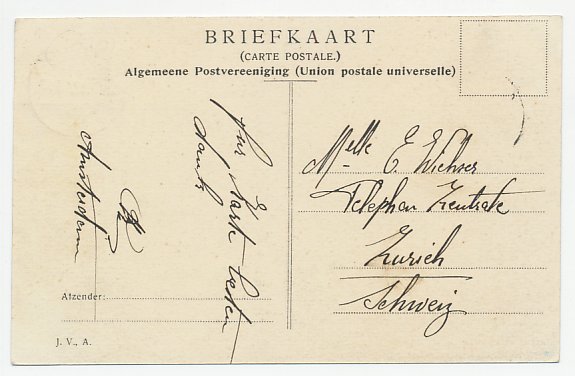 BRIEFKAART
(CARTE POSTALE.)
Algemeene Postvereeniging (Union postale universelle)
für Karte besten
dank
Amsterdam
Afzender:
J. V., A.
Melle E. Wichser
Telephon Zentrale
Zurich
Schweiz